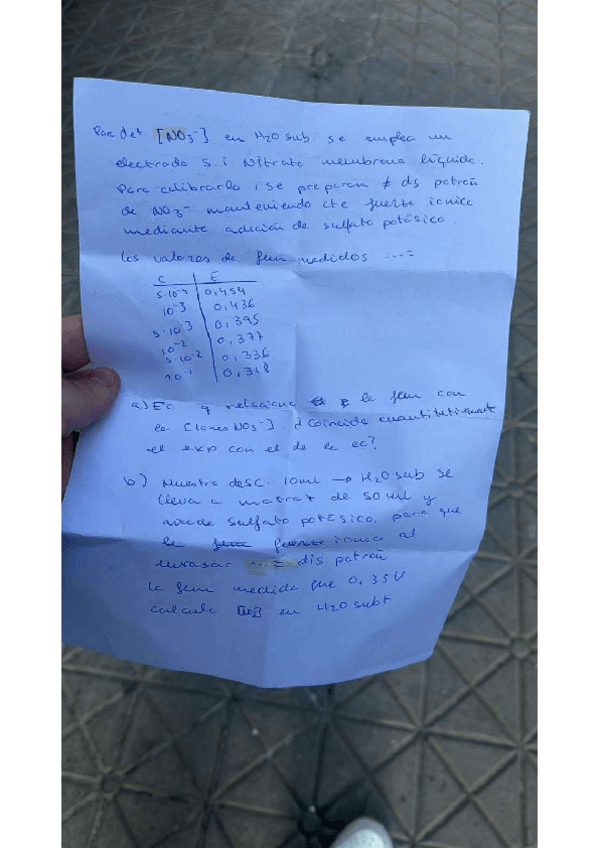 Para det [NO3-] en H2O sub se emplea un
electrodo s.i Nitrato membrana líquida.
Para calibrarlo, se preparan ≠ ds patrón
de NO3- manteniendo cte fuerza iónica
mediante adición de sulfato potásico.
Los valores de fem medidos ...=
C E
5·10-4 0,454
10-3 0,436
5·10-3 0,395
10-2 0,377
5·10-2 0,336
10-1 0,318
a) Ec q relaciona la fem con
la [iones NO3-]. ¿Coincide cuantitativamente
el exp con el de la ec?
b) Muestra desc. 10ml → H2O sub se
lleva a matraz de 50 ml y
añade sulfato potásico, para que
la fuerza iónica al
enrasar ...= dis patrón
la fem medida fue 0,35V
calcula en H2O subt